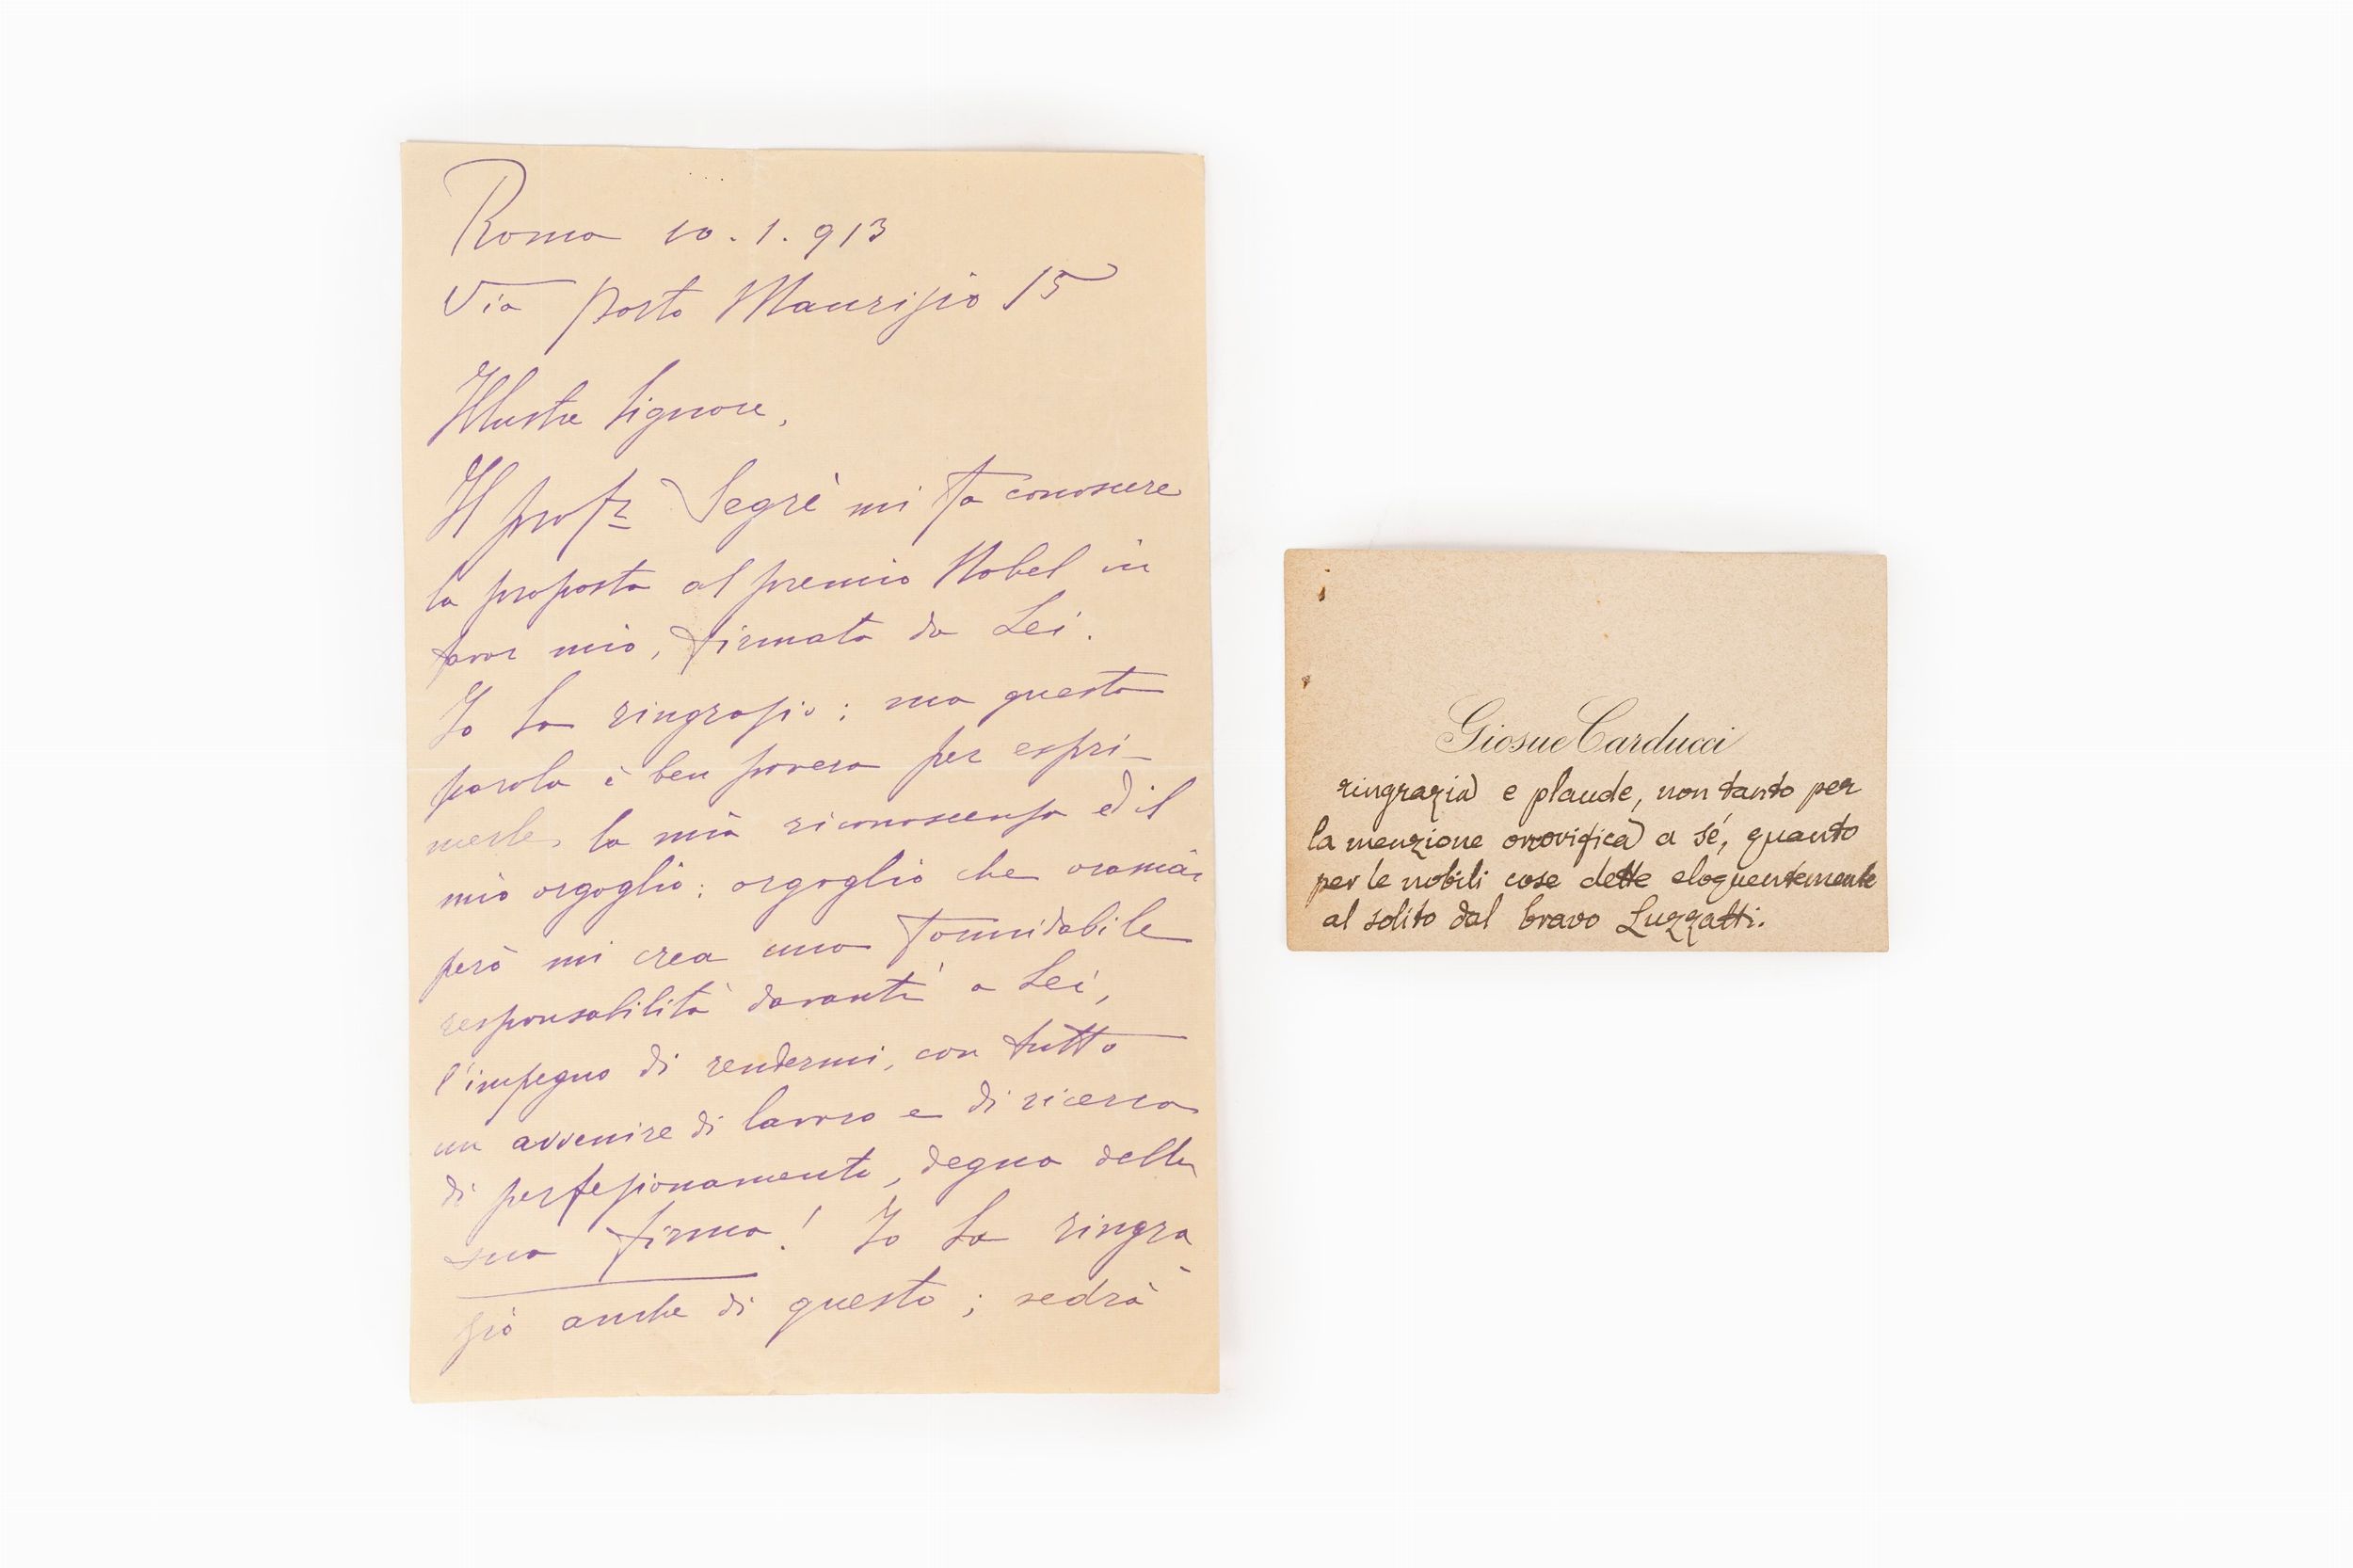 Roma 10.1.913
Via Porto Maurizio 15
Illustre Signore,
Il profr Segrè mi fa conoscere
la proposta al premio Nobel in
favor mio, firmata da Lei.
Io La ringrazio; ma questa
parola è ben povera per espri-
merle la mia riconoscenza ed il
mio orgoglio; orgoglio che oramai
però mi crea una formidabile
responsabilità davanti a Lei,
l'impegno di rendermi, con tutto
un avvenire di lavoro e di ricerca
di perfezionamento, degna della
sua firma! Io La ringra
zio anche di questo; sedrà
Giosue Carducci
ringrazia e plaude, non tanto per
la menzione onorifica a sé, quanto
per le nobili cose dette eloquentemente
al solito dal bravo Luzzatti.